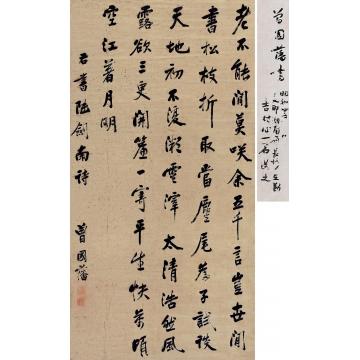 老不能閒莫咲余五千言豈世閒
書松枝折取當麈尾為子試談
天地初不復微雲滓太清浩然風
露欲三更開簾一寄平生快萬頃
空江著月明
右書陸劍南詩
曾國藩
曾國藩書